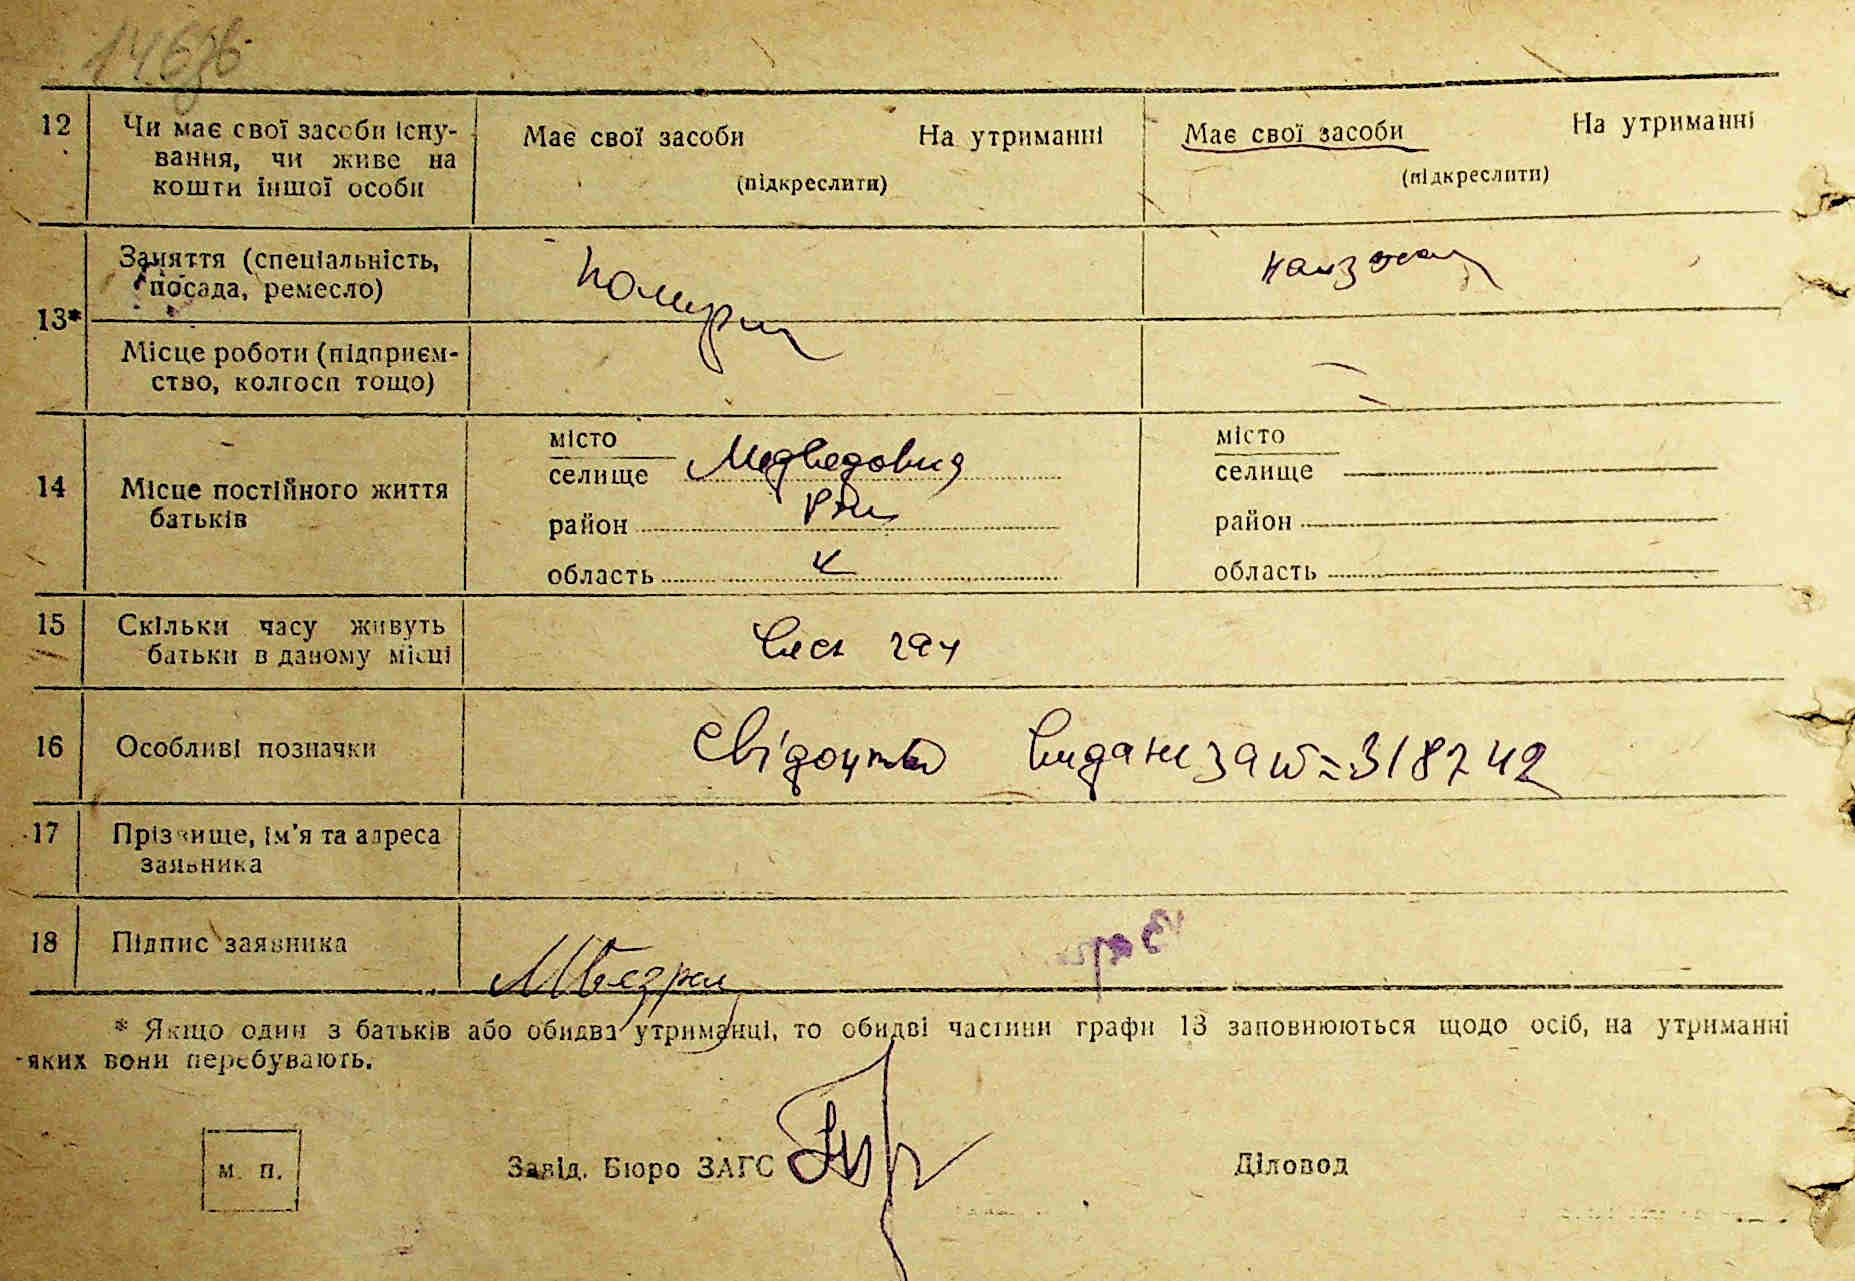 12
Чи має свої засоби існу-
вання, чи живе на
кошти іншої особи
Має свої засоби На утриманні
(підкреслити)
Має свої засоби На утриманні
(підкреслити)
13*
Заняття (спеціальність,
посада, ремесло)
Місце роботи (підприєм-
ство, колгосп тощо)
14
Місце постійного життя
батьків
місто
селище Медведовка
район
область
місто
селище
район
область
15
Скільки часу живуть
батьки в даному місці
весь час
16
Особливі позначки
Свідоцтво видане за № 318742
17
Прізвище, ім'я та адреса
заявника
18
Підпис заявника
* Якщо один з батьків або обидва утриманці, то обидві частини графи 13 заповнюються щодо осіб, на утриманні
яких вони перебувають.
м. п.
Завід. Бюро ЗАГС
Діловод